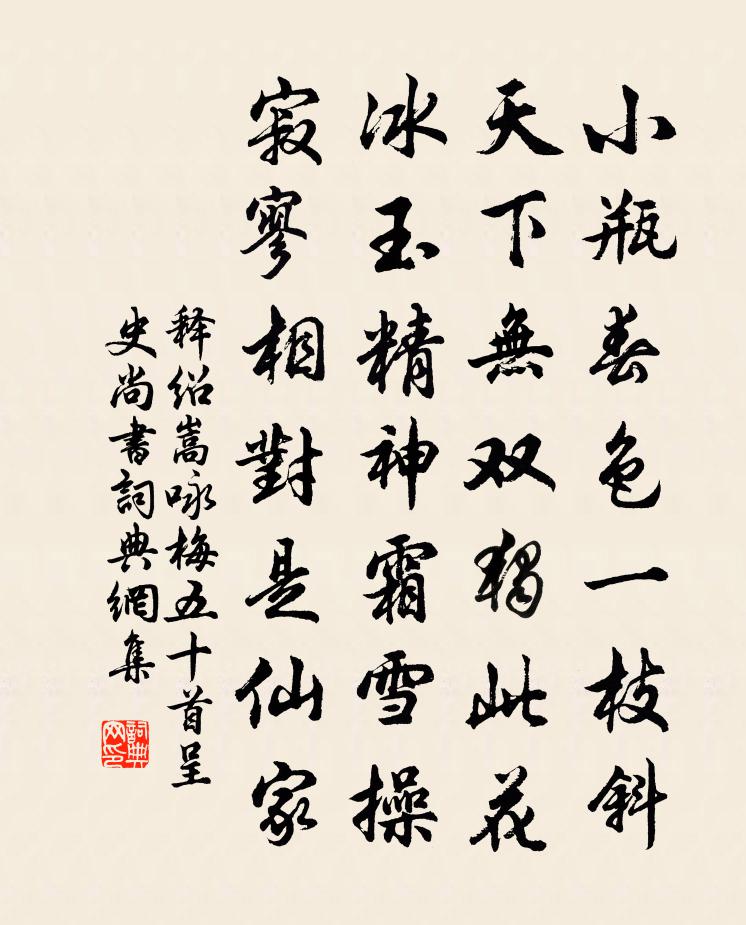 小瓶春色一枝斜
天下無双獨此花
冰玉精神霜雪操
寂寥相對是仙家
释绍嵩咏梅五十首呈
史尚書詞典網集
詞典网印